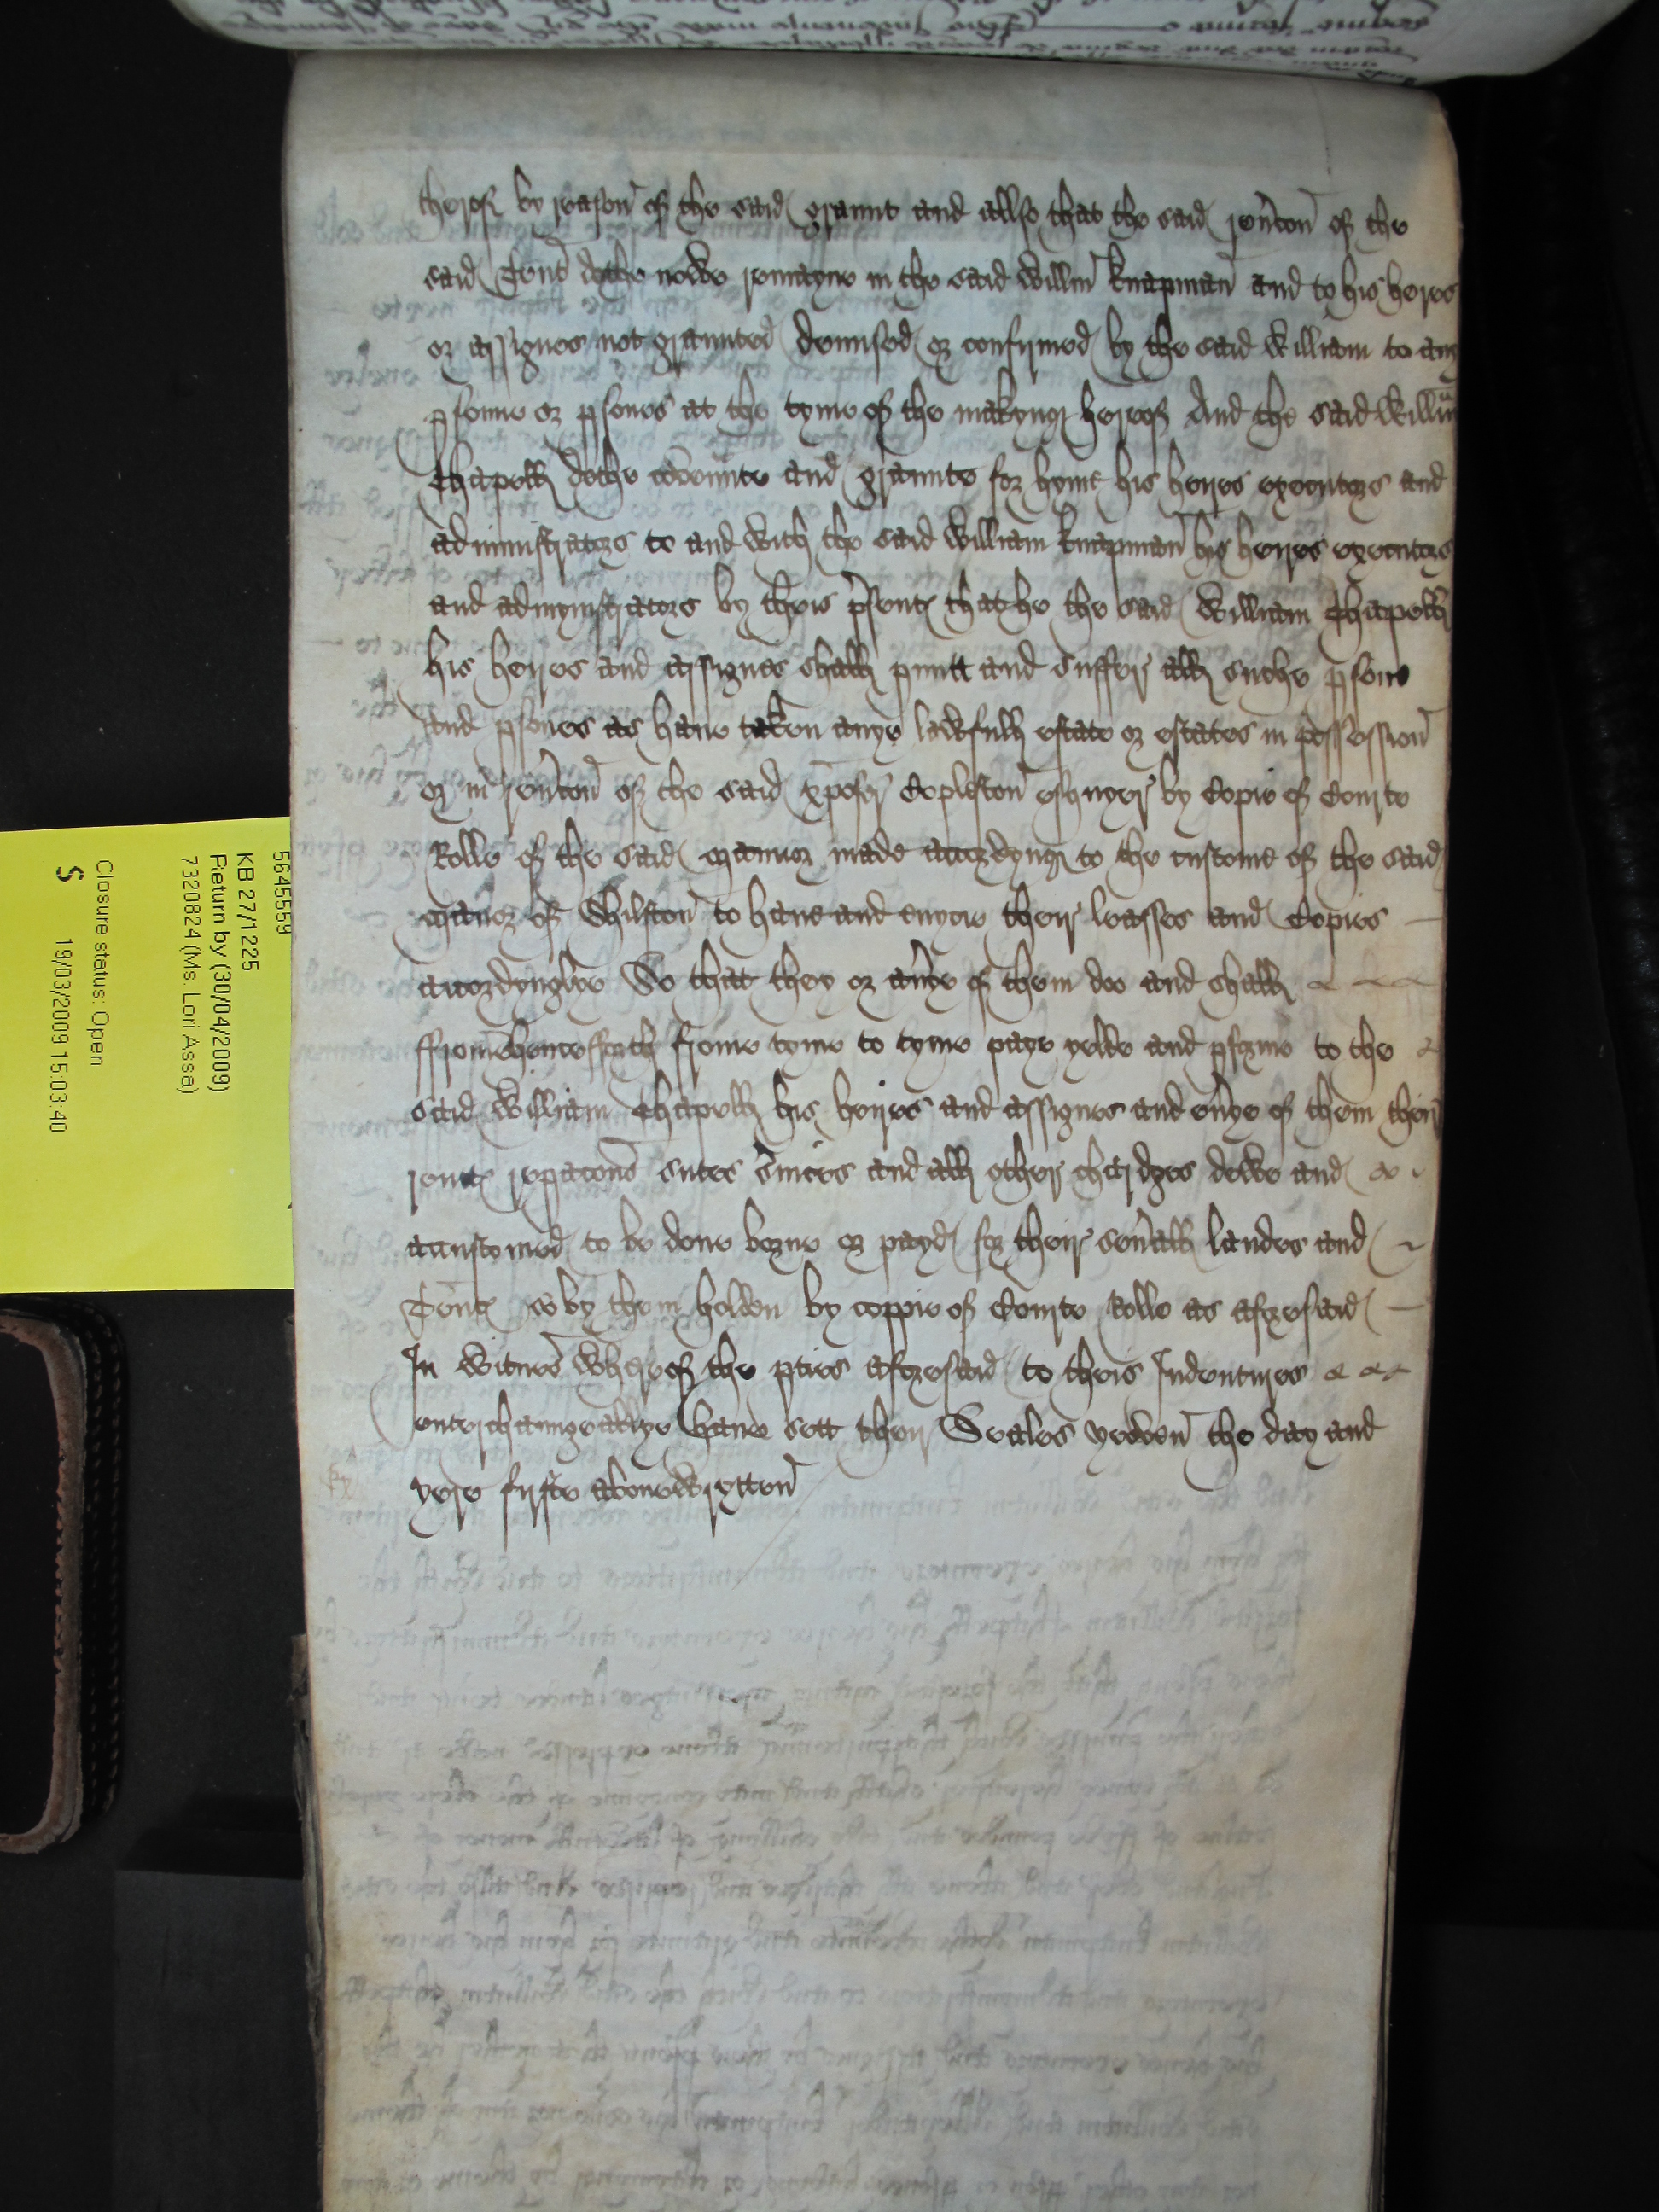 therof by reason of the said graunt and allso that the said reu'con of the
said Tent' dothe nowe remayne in the said Willm Knapman and to his heres
or assignes not graunted demised or confirmed by the said William to any
psonne or psones at the tyme of the makyng hereof And the said Willm
Chapell dothe couennte and graunte for hyme his heyres executors and
administrators to and with the said William Knapman his heyres executors
and admynistrators by theis psent that he the said William Chapell
his heyres and assignes shall pmitt and suffer all suche psone
and psones as haue taken anye lawfull estate or estates in possession
or in reu'con of the said xpofer Coplston esquyer by Copie of Courte
Rolle of the said manor made accordyng to the custome of the said
manor of Shilston to haue and enyoie their leasses and Copies
accordynglye So that they or anye of them doo and shall
ffromehenceffurth frome tyme to tyme paye yelde and pforme to the
said William Chapell his heyres and assignes and eu'ye of them their
rent repacons sutes s'uices and all other chardges dewe and
accustomed to be done borne or payd for their seu'all landes and
Tent so by them holden by coppie of Courte Rolle as aforesaid
In witnes wherof the pties aforesaid to theis Indentures
enterchaungeablye haue sett their Seales yeoven the day and
yere firste abouewrytten
5645559
KB 27/1225
Return by (30/04/2009)
7320824 (Ms. Lori Assa)
Closure status: Open
S 19/03/2009 15:03:40